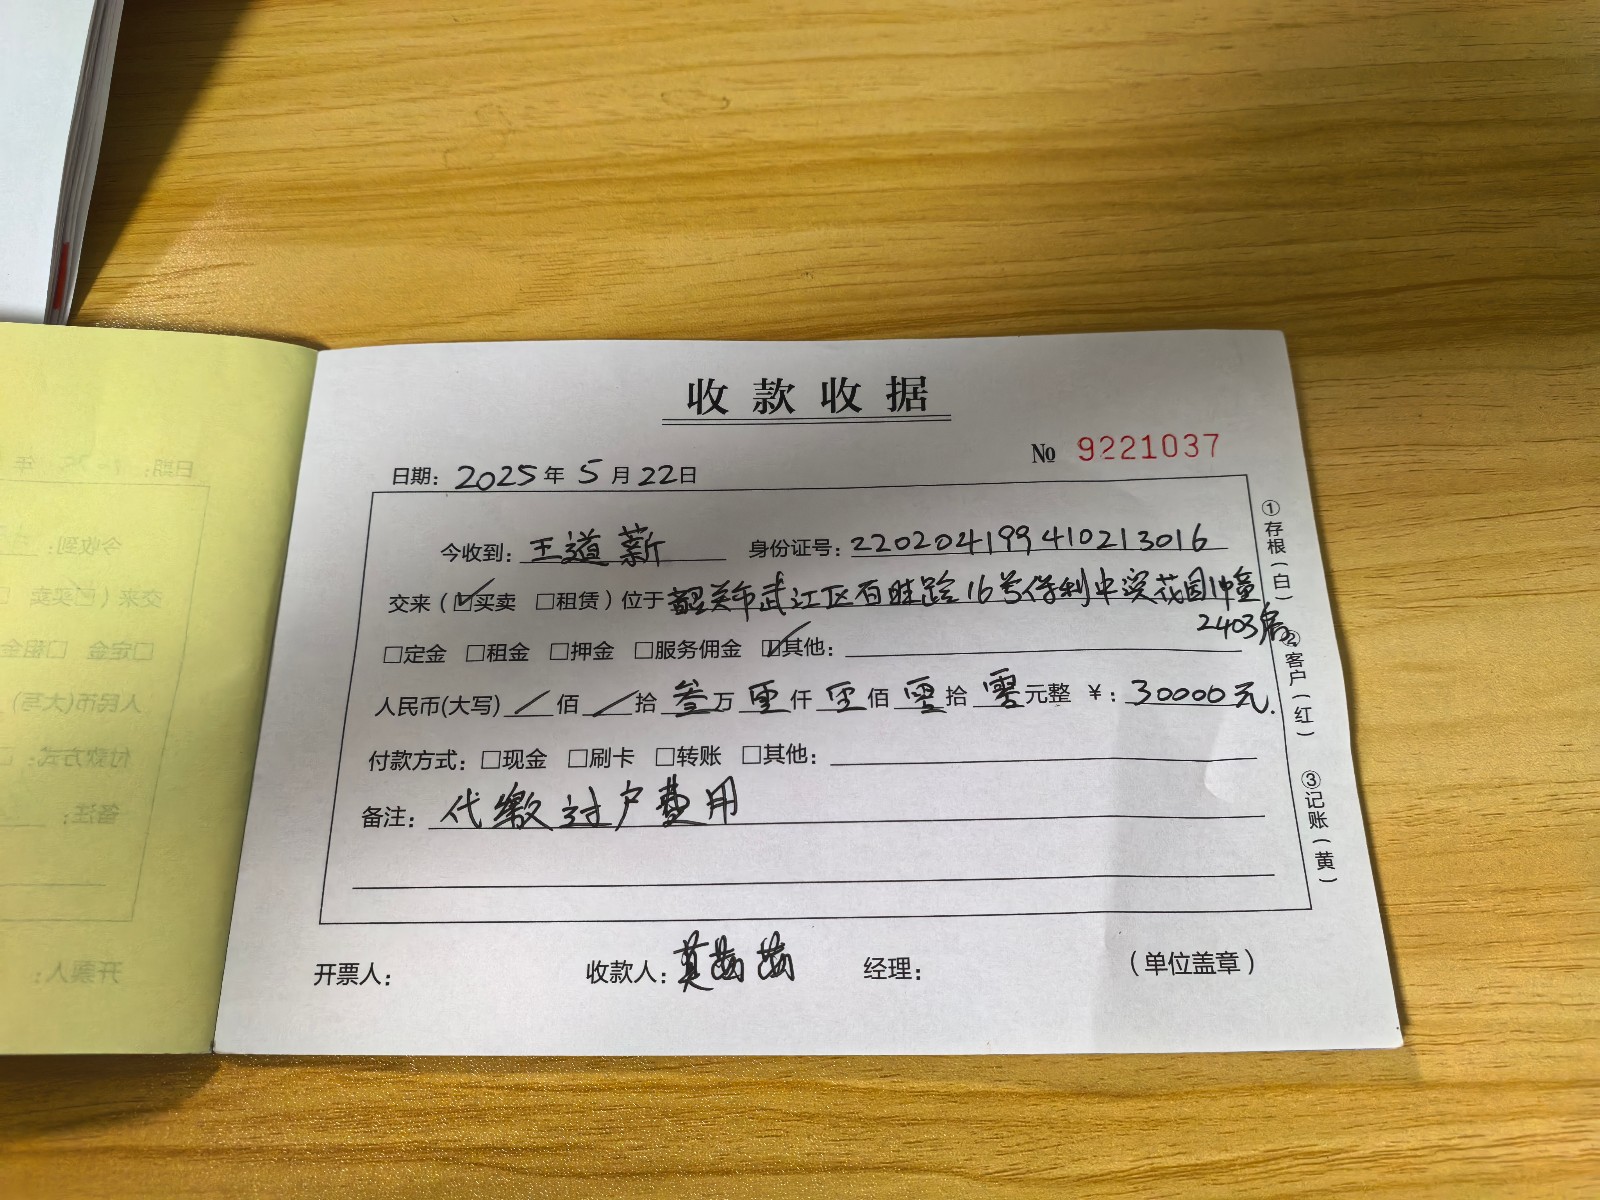 收款收据
No 9221037
日期：2025年5月22日
今收到：王道薪 身份证号：220204199410213016
交来（☑买卖 □租赁）位于韶关市武江区百旺路16号保利中宸花园1幢
2403房
□定金 □租金 □押金 □服务佣金 ☑其他：
人民币(大写) / 佰 / 拾 叁 万 零 仟 零 佰 零 拾 零 元整 ¥：30000元.
付款方式：□现金 □刷卡 □转账 □其他：
备注：代缴过户费用
开票人： 收款人：莫 经理： （单位盖章）
①存根（白）
②客户（红）
③记账（黄）
日期： 年
今收到：
交来（☑买卖
□定金 □租金
人民币(大写)
付款方式：
备注：
开票人：